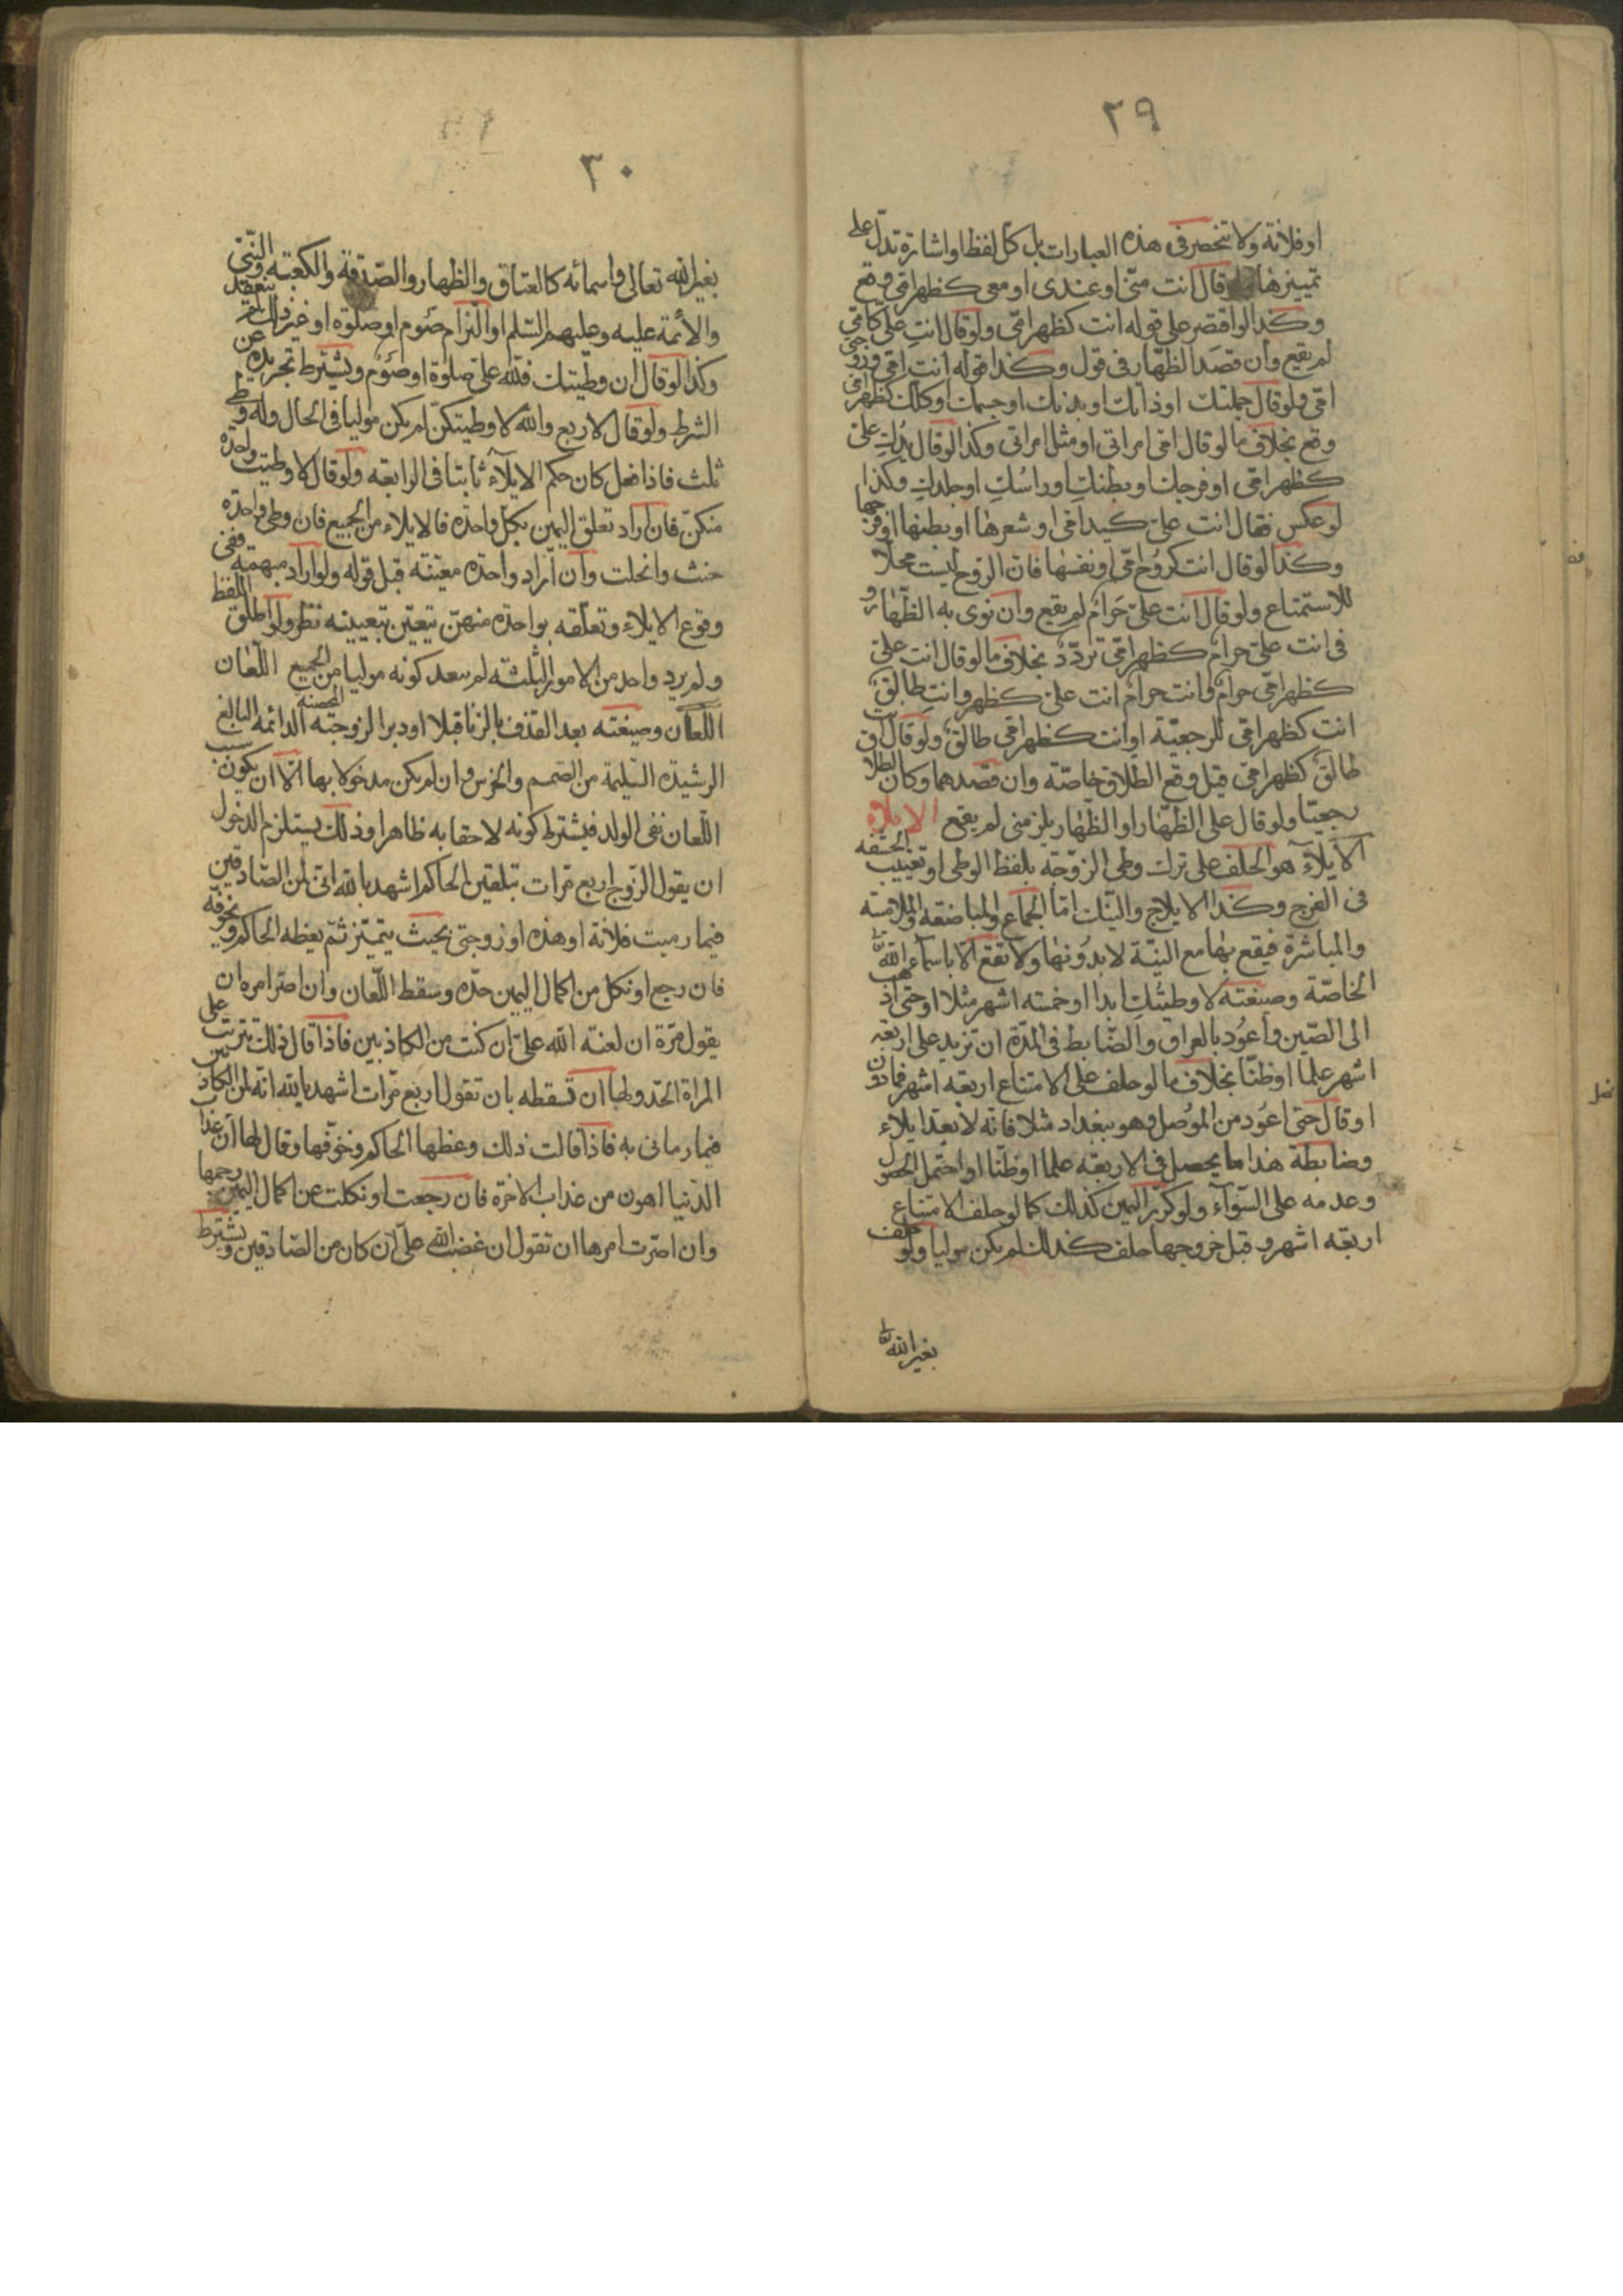 ٢٩
او فلانة ولا تنحصر فى هذه العبارات بل كل لفظ او اشارة تدل على
تمييزها ولو قال انت منى او عندى او معى كظهر امى وقع
وكذا لو اقتصر على قوله انت كظهر امى ولو قال انت على كامى
لم يقع وان قصد الظهار فى قول وكذا قوله انت امى وزوجتى
امى ولو قال جملتك او ذاتك او بدنك او جسمك او كلك كظهر امى
وقع بخلاف ما لو قال امى امراتى او مثل امراتى وكذا لو قال يدك على
كظهر امى او فرجك او بطنك او راسك او جلدك وكذا
لو عكس فقال انت على كيد امى او شعرها او بطنها او فرجها
وكذا لو قال انت كروح امى او نفسها فان الروح ليست محلا
للاستمتاع ولو قال انت على حرام لم يقع وان نوى به الظهار و
فى انت على حرام كظهر امى تردد بخلاف ما لو قال انت على
كظهر امى حرام وانت حرام انت على كظهر وانت طالق
انت كظهر امى للرجعية او انت كظهر امى طالق ولو قال انت
طالق كظهر امى قيل وقع الطلاق خاصة وان قصدهما وكان الطلاق
رجعيا ولو قال على الظهار او الظهار يلزمنى لم يقع الايلاء
الايلاء هو الحلف على ترك وطى الزوجة بلفظ الوطى او تغييب الحشفه
فى الفرج وكذا الايلاج والنيك اما الجماع والمباضعة والملامسه
والمباشرة فيقع بها مع النية لا بدونها ولا تقع الا باسماء الله تعا
الخاصة وصيغته لا وطيتك ابدا او خمسه اشهر مثلا او حتى اذهب
الى الصين واعود بالعراق والضابط فى المدة ان تزيد على اربعة
اشهر علما او ظنا بخلاف ما لو حلف على الامتناع اربعه اشهر فما دون
او قال حتى اعود من الموصل وهو ببغداد مثلا فانه لا يعد ايلاء
وضابطة هذا ما يحصل فى الاربعه علما او ظنا او احتمل الحصول
وعدمه على السوآء ولو كرر اليمين كذلك كما لو حلف الامتناع
اربعه اشهر و قبل خروجها حلف كذلك لم يكن موليا ولو حلف
بغير الله تعا
٣٠
بغير الله تعالى واسمائه كالعتاق والظهار والصدقة والكعبه والنبى
والأئمة عليه وعليهم السلم او التزام صوم او صلوة او غير ذلك لم ينعقد
وكذا لو قال ان وطيتك فلله على صلوة او صوم ويشترط تجريده عن
الشرط ولو قال لاربع والله لا وطيتكن لم يكن موليا فى الحال وله وطى
ثلث فاذا فعل كان حكم الايلآء ثابتا فى الرابعه ولو قال لا وطيت واحدة
منكن فان اراد تعلق اليمين بكل واحدة فالايلاء من الجميع فان وطى واحدة
حنث وانحلت وان اراد واحدة معينه قبل قوله ولو اراد مبهمة ففى
وقوع الايلاء وتعلقه بواحدة منهن يتعين بتعيينه نظر ولو اطلق اللفظ
ولم يرد واحد من الامور الثلثه لم يبعد كونه موليا من الجميع اللعان
اللعان وصيغته بعد القذف بالزنا قبلا او دبر الزوجته المحصنة الدائمه البالغ
الرشيدة السليمة من الصمم والخرس وان لم يكن مدخولا بها الا ان يكون سبب
اللعان نفى الولد فيشترط كونه لاحقا به ظاهرا وذلك يستلزم الدخول
ان يقول الزوج اربع مرات بتلقين الحاكم اشهد بالله انى لمن الصادقين
فيما رميت فلانة او هذه او زوجتى بحيث يتميز ثم يعظه الحاكم ويخوفه
فان رجع او نكل من اكمال اليمين حده وسقط اللعان وان اصر امره ان
يقول مرة ان لعنة الله على ان كنت من الكاذبين فاذا قال ذلك ترتب على
المراة الحد ولها ان تسقطه بان تقول اربع مرات اشهد بالله انه لمن الكاذبين
فيما رمانى به فاذا قالت ذلك وعظها الحاكم وخوفها وقال لها ان عذاب
الدنيا اهون من عذاب الاخرة فان رجعت او نكلت عن اكمال اليمين رجمها
وان اصرت امرها ان تقول ان غضب الله على ان كان من الصادقين ويشترط